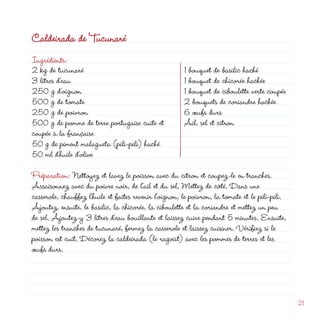 Caldeirada de Tucunaré
Ingrédients:
2 kg de tucunaré
3 litres d'eau
250 g d'oignon
500 g de tomate
250 g de poivron
500 g de pomme de terre portugaise cuite et
coupée à la française
50 g de piment malagueta (pili-pili) haché
50 ml d'huile d'olive
1 bouquet de basilic haché
1 bouquet de chicorée hachée
1 bouquet de ciboulette verte coupée
2 bouquets de coriandre hachée
6 œufs durs
Ail, sel et citron
Préparation: Nettoyez et lavez le poisson avec du citron et coupez-le en tranches.
Assaisonnez avec du poivre noir, de l'ail et du sel. Mettez de côté. Dans une
casserole, chauffez l'huile et faites revenir l'oignon, le poivron, la tomate et le pili-pili.
Ajoutez, ensuite, le basilic, la chicorée, la ciboulette et la coriandre et mettez un peu
de sel. Ajoutez-y 3 litres d'eau bouillante et laissez cuire pendant 5 minutes. Ensuite,
mettez les tranches de tucunaré, fermez la casserole et laissez cuisiner. Vérifiez si le
poisson est cuit. Décorez la caldeirada (le ragoût) avec les pommes de terres et les
œufs durs.
21